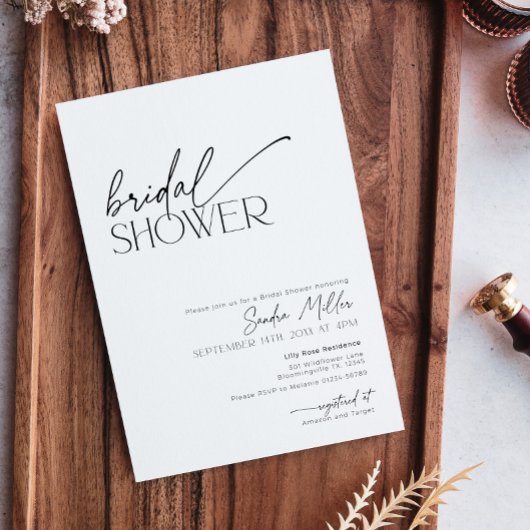 bridal
SHOWER
Please join us for a Bridal Shower honoring
Sandra Miller
SEPTEMBER 14TH, 20XX AT 4PM
Lilly Rose Residence
501 Wildflower Lane
Bloomingville TX, 12345
Please RSVP to Melanie 01234-56789
registered at
Amazon and Target